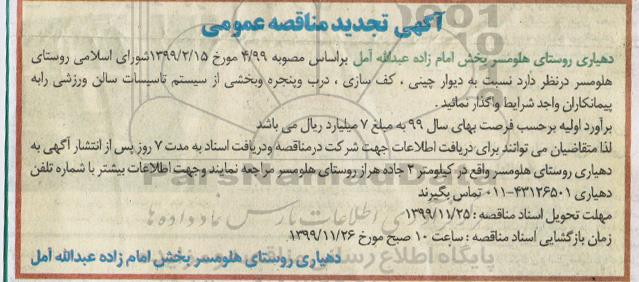 آگهی تجدید مناقصه عمومی
دهیاری روستای هلومسر بخش امام زاده عبدالله آمل براساس مصوبه ۴/۹۹ مورخ ۱۳۹۹/۲/۱۵شورای اسلامی روستای
هلومسر درنظر دارد نسبت به دیوار چینی ، کف سازی ، درب وپنجره وبخشی از سیستم تاسیسات سالن ورزشی رابه
پیمانکاران واجد شرایط واگذار نمائید .
برآورد اولیه برحسب فرصت بهای سال ۹۹ به مبلغ ۷ میلیارد ریال می باشد
لذا متقاضیان می توانند برای دریافت اطلاعات جهت شرکت درمناقصه ودریافت اسناد به مدت ۷ روز پس از انتشار آگهی به
دهیاری روستای هلومسر واقع در کیلومتر ۲ جاده هراز روستای هلومسر مراجعه نمایند وجهت اطلاعات بیشتر با شماره تلفن
دهیاری ۴۳۱۲۶۵۰۱-۰۱۱ تماس بگیرند
مهلت تحویل اسناد مناقصه : ۱۳۹۹/۱۱/۲۵
زمان بازگشایی اسناد مناقصه : ساعت ۱۰ صبح مورخ ۱۳۹۹/۱۱/۲۶
دهیاری روستای هلومسر بخش امام زاده عبدالله آمل